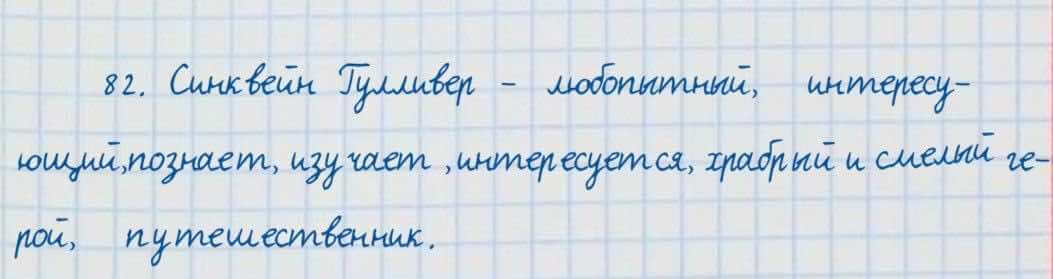 82. Синквейн Гулливер - любопытный, интересу-
ющий,познает, изучает ,интересуется, храбрый и смелый ге-
рой, путешественник.